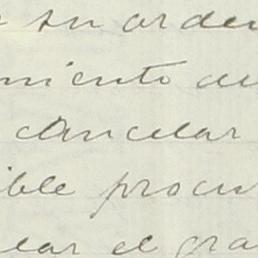 su orden
miento de
cancelar
ible procu
lar el gra